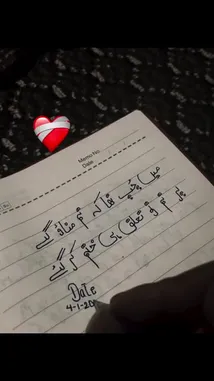 Memo No.
Date
میں چپ تھا کہ تم مناؤ گے
پر تم تو تعلق ہی ختم کر گئے
Date
4-1-20